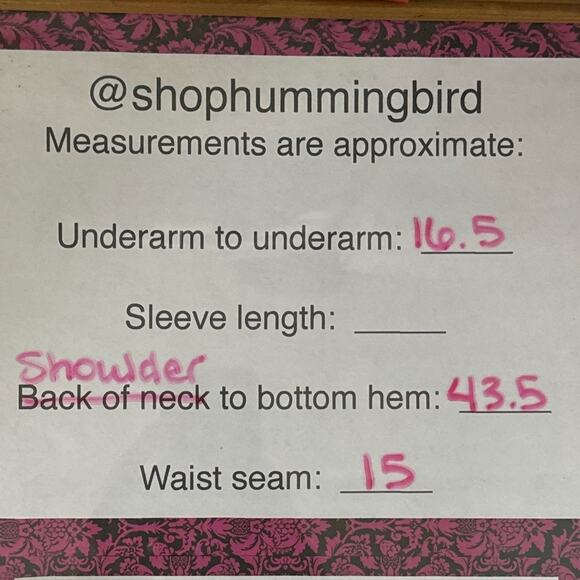 @shophummingbird
Measurements are approximate:
Underarm to underarm: 16.5
Sleeve length:
Shoulder
Back of neck to bottom hem: 43.5
Waist seam: 15